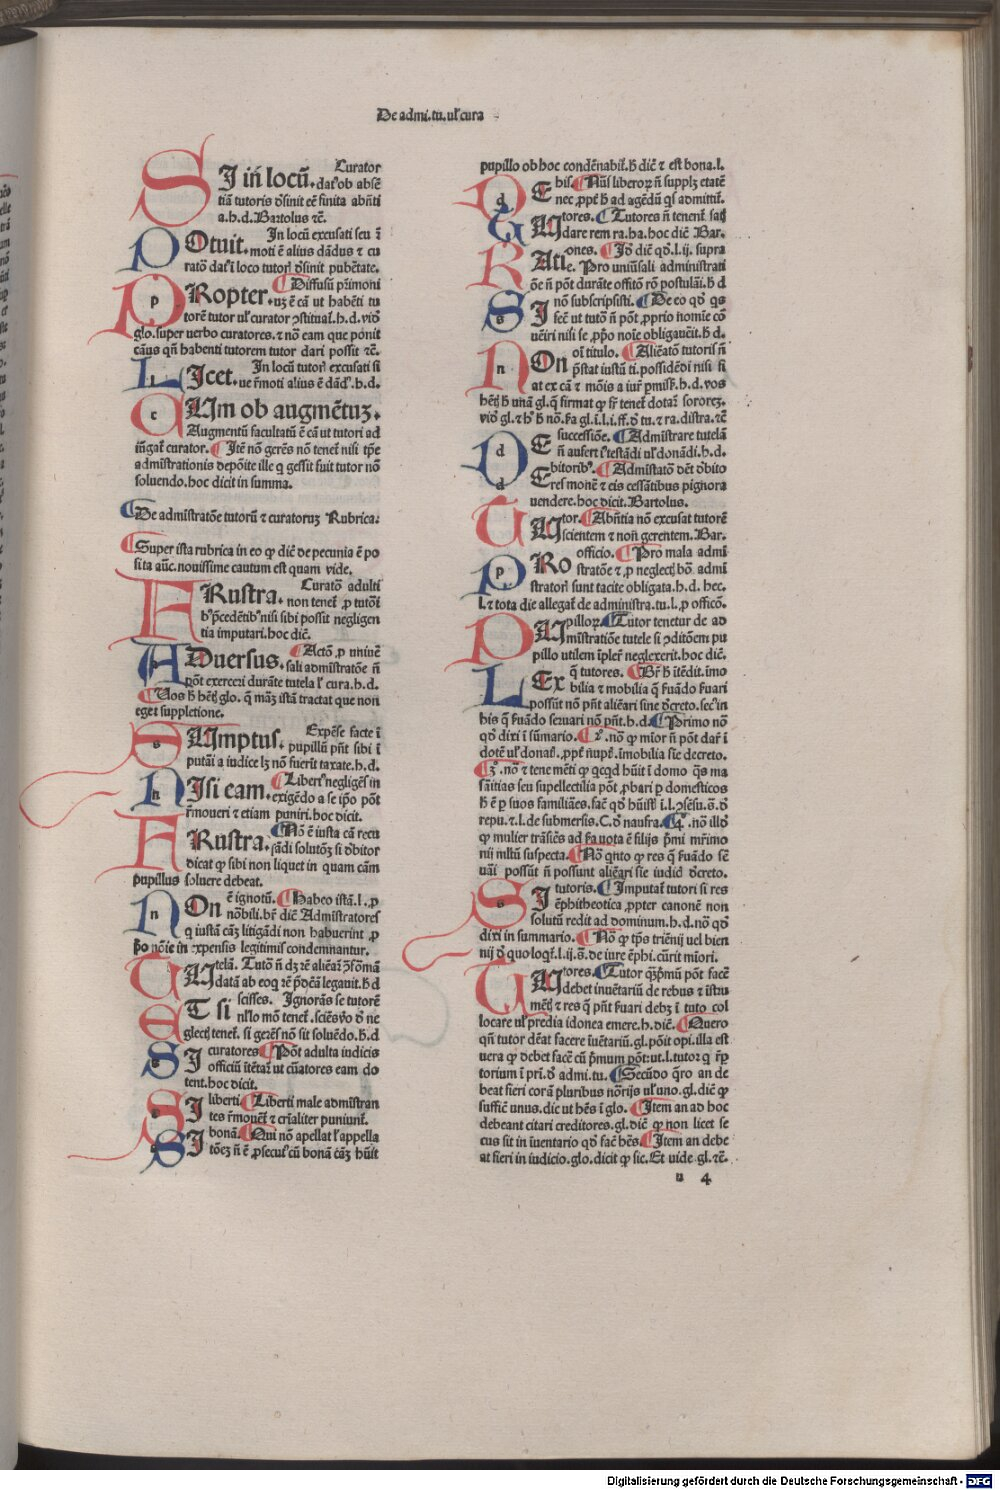 De admi.tu.ul'cura
Curator
SI iñ locũ. dat' ob absē
tiã tutoris d'sinit eē finita abñti
a.h.d. Bartolus rē.
In locũ excusati seu ĩ
POtuit. moti ē alius dãdus ⁊ cu
ratõ dat' ĩ loco tutor' d'sinit pubētate.
¶ Diffusũ p̃rimoni
PRopter. uz ē cã ut habēti tu
torē tutor ul' curator ɔstituat'. h.d. vid'o
glo. super uerbo curatores. ⁊ nõ eam que ponit
cãus qñ habenti tutorem tutor dari possit rē.
In locũ tutor' excusati si
LIcet. ue r̃moti alius ē dãd'. h.d.
CUm ob augmētuz.
Augmentũ facultatũ ē cã ut tutori ad
iñgat' curator. ¶ Itē nõ gerēs nõ tenet' nisi tp̃e
admĩstrationis depõite ille q̃ gessit fuit tutor nõ
soluendo. hoc dicit in summa.
¶ De admĩstratõe tutorũ ⁊ curatoruz Rubrica.
¶ Super ista rubrica in eo q̃ dic̃ de pecunia ē po
sita auc̃. nouissime cautum est quam vide.
Curatõ adulti
FRustra. non tenet' p̱ tutor'
b' p̃cedētib' nisi sibi possit negligen
tia imputari. hoc dic̃.
¶ Actõ p̱ uniuē
ADuersus. sali admĩstratõe ñ
põt exerceri durãte tutela l' cura. h.d.
¶ Uos h̃ hētis glo. q̃ mãz istã tractat que non
eget suppletione.
Expēse facte ĩ
SUmptus. pupillũ pñt sibi ĩ
putãi a iudice lz nõ fuerĩt taxate. h.d.
¶ Libert' negligēs in
NIsi eam. exigēdo a se ip̃o põt
r̃moueri ⁊ etiam puniri. hoc dicit.
¶ Nõ ē iusta cã recu
FRustra. sãdi solutõz si d'bitor
dicat q̃ sibi non liquet in quam cãm
pupillus soluere debeat.
ē ignotũ. ¶ Habeo istã. l. p̱
NOn nõbili. br̃ dic̃ Admĩstratores
q̃ iustã cãz litigãdi non habuerint p̱
p̃o nõie in expensis legitimis condennantur.
UT telã. Tutõ ñ dz rē aliēãr' ɔ̃ formã
datã ab eo q̃ rē p̃dc̃ã legauit. h̃ d
scisses. Ignorãs se tutorē
ET si nllo mõ tenet'. sciēs v'o d' ne
glectis tenet'. si gerēs nõ sit soluēdo. h̃.d
curatores ¶ Põt adulta iudicis
SI officiũ itētar' ut cũatores eam do
tent. hoc dicit.
liberti ¶ Liberti male admĩstran
SI tes r̃mouēt' ⁊ cr̃ialiter puniunt'.
bonã. ¶ Qui nõ apellat l' appella
SI tõez ñ ē p̱secut' cũ bonã cãz hũit
pupillo ob hoc condēnabit'. h̃ dic̃ ⁊ est bona. l.
bis. ¶ Nũs liberor' ñ supplz etatē
DE nec p̱pt' h̃ ad agēdũ q̃s admittit'.
tores. ¶ Tutores ñ tenent' satis
UT dare rem ra. ha. hoc dic̃ Bar.
ones. ¶ Io. dic̃ q̃o. l. ij. supra
RAti e. Pro uniũsali administrati
õe ñ põt durãte offitio rõ postulãi. h̃ d
nõ subscripsisti. ¶ De eo q̃o q̃s
SI fec̃ ut tutõ ñ põt p̱prio nomie cõ
uēiri nisi se p̱p̃o noie obligauēit. h̃ d.
oi titulo. ¶ Aliēatõ tutoris ñ
NOn p̱stat iustã ti. possidēdi nisi fi
at ex cã ⁊ mõis a iur' pmiss'. h.d. vos
hētis h̃ unã gl. q̃ firmat q̃ fr̃ tenet' dotar' sororez.
vid'o gl. ⁊ h' h̃ nõ. fa gl. ĩ. l. i. ff. d' tu. ⁊ ra. distra. ⁊ē
successiõe. ¶ Admĩstrare tutelã
DE ñ aufert' ĩtestãdi ul' donãdi. h.d.
bitorib'. ¶ Admĩstatõ dēt d'bito
DEres monē ⁊ eis cessãtibus pignora
uendere. hoc dicit. Bartolus.
tor. ¶ Abñtia nõ excusat tutorē
UT scientem ⁊ non gerentem. Bar.
officio. ¶ Pro mala admĩ
PRo stratõe ⁊ p̱ neglectis bõ. admĩ
strator' sunt tacite obligata. h.d. hec.
l. ⁊ tota die allegat' de administra. tu. l. p̱ officõ.
pillor'. ¶ Tutor tenetur de ad
PU mĩstratiõe tutele si ɔditõem pu
pillo utilem ĩpler' neglexerit. hoc dic̃.
q̃ tutores. ¶ Br̃ h̃ ĩtēdit. imo
LEx bilia ⁊ mobilia q̃ s'uãdo s'uari
possũt nõ pñt aliēari sine d'creto. sec' in
his q̃ s'uãdo seruari nõ pñt. h.d. ¶ Primo nõ
q̃o dixi ĩ sũmario. ¶ 2°. nõ q̃ mior ñ põt dar' ĩ
dotē ul' donaĩ'. p̱pt' nupt'. imobilia sie decreto.
¶ 3°. nõ ⁊ tene mēti q̃ qcqd hũit ĩ domo q̃s ma
sãitias seu supellectilia põt p̱bari p̱ domesticos
h̃ ē p̱ suos familiães. fac̃ q̃o hũist' ĩ. l. ɔsēsu. õ. d'
repu. ⁊. l. de submersis. C. d' naufra. ¶ 4°. nõ illd'
q̃ mulier trãsiēs ad s'a uota ē filijs p̱mi mr̃imo
nij mltũ suspecta. ¶ Nõ q̃nto q̃ res q̃ s'uãdo s'ē
uãi possũt ñ possunt aliēari sie iudic̃ d'creto.
tutoris. ¶ Imputat' tutori si res
SI ēphitheotica p̱pter canonē non
solutũ redit ad dominum. h.d. nõ q̃o
dixi in summario. ¶ Nõ q̃ tp̃s triēnij uel bien
nij d' quo loqt'. l. ij. s. de iure ēphi. cũrit miori.
tores. ¶ Tutor q̃p̃mũ põt facē
UT debet inuētariũ de rebus ⁊ ĩstru
mētis ⁊ res q̃ pñt s'uari debz ĩ tuto col
locare ul' predia idonea emere. h. dic̃. ¶ Quero
qñ tutor dēat facere ĩuētariũ. gl. põit opi. illa est
uera q̃ debet facē cũ p̃mum põt: ut. l. tutor q̃ rep̱
torium ĩ prĩ. d' admi. tu. ¶ Secũdo q̃ro an de
beat fieri corã pluribus nõrijs ul' uno. gl. dic̃ q̃
suffic̃ unus. dic ut hēs ĩ glo. ¶ Item an ad hoc
debeant citari creditores. gl. dic̃ q̃ non licet se
cus sit in ĩuentario q̃o fac̃ hēs. ¶ Item an debe
at fieri in iudicio. glo. dicit q̃ sic. Et uide gl. rē.
u 4
Digitalisierung gefördert durch die Deutsche Forschungsgemeinschaft - DFG